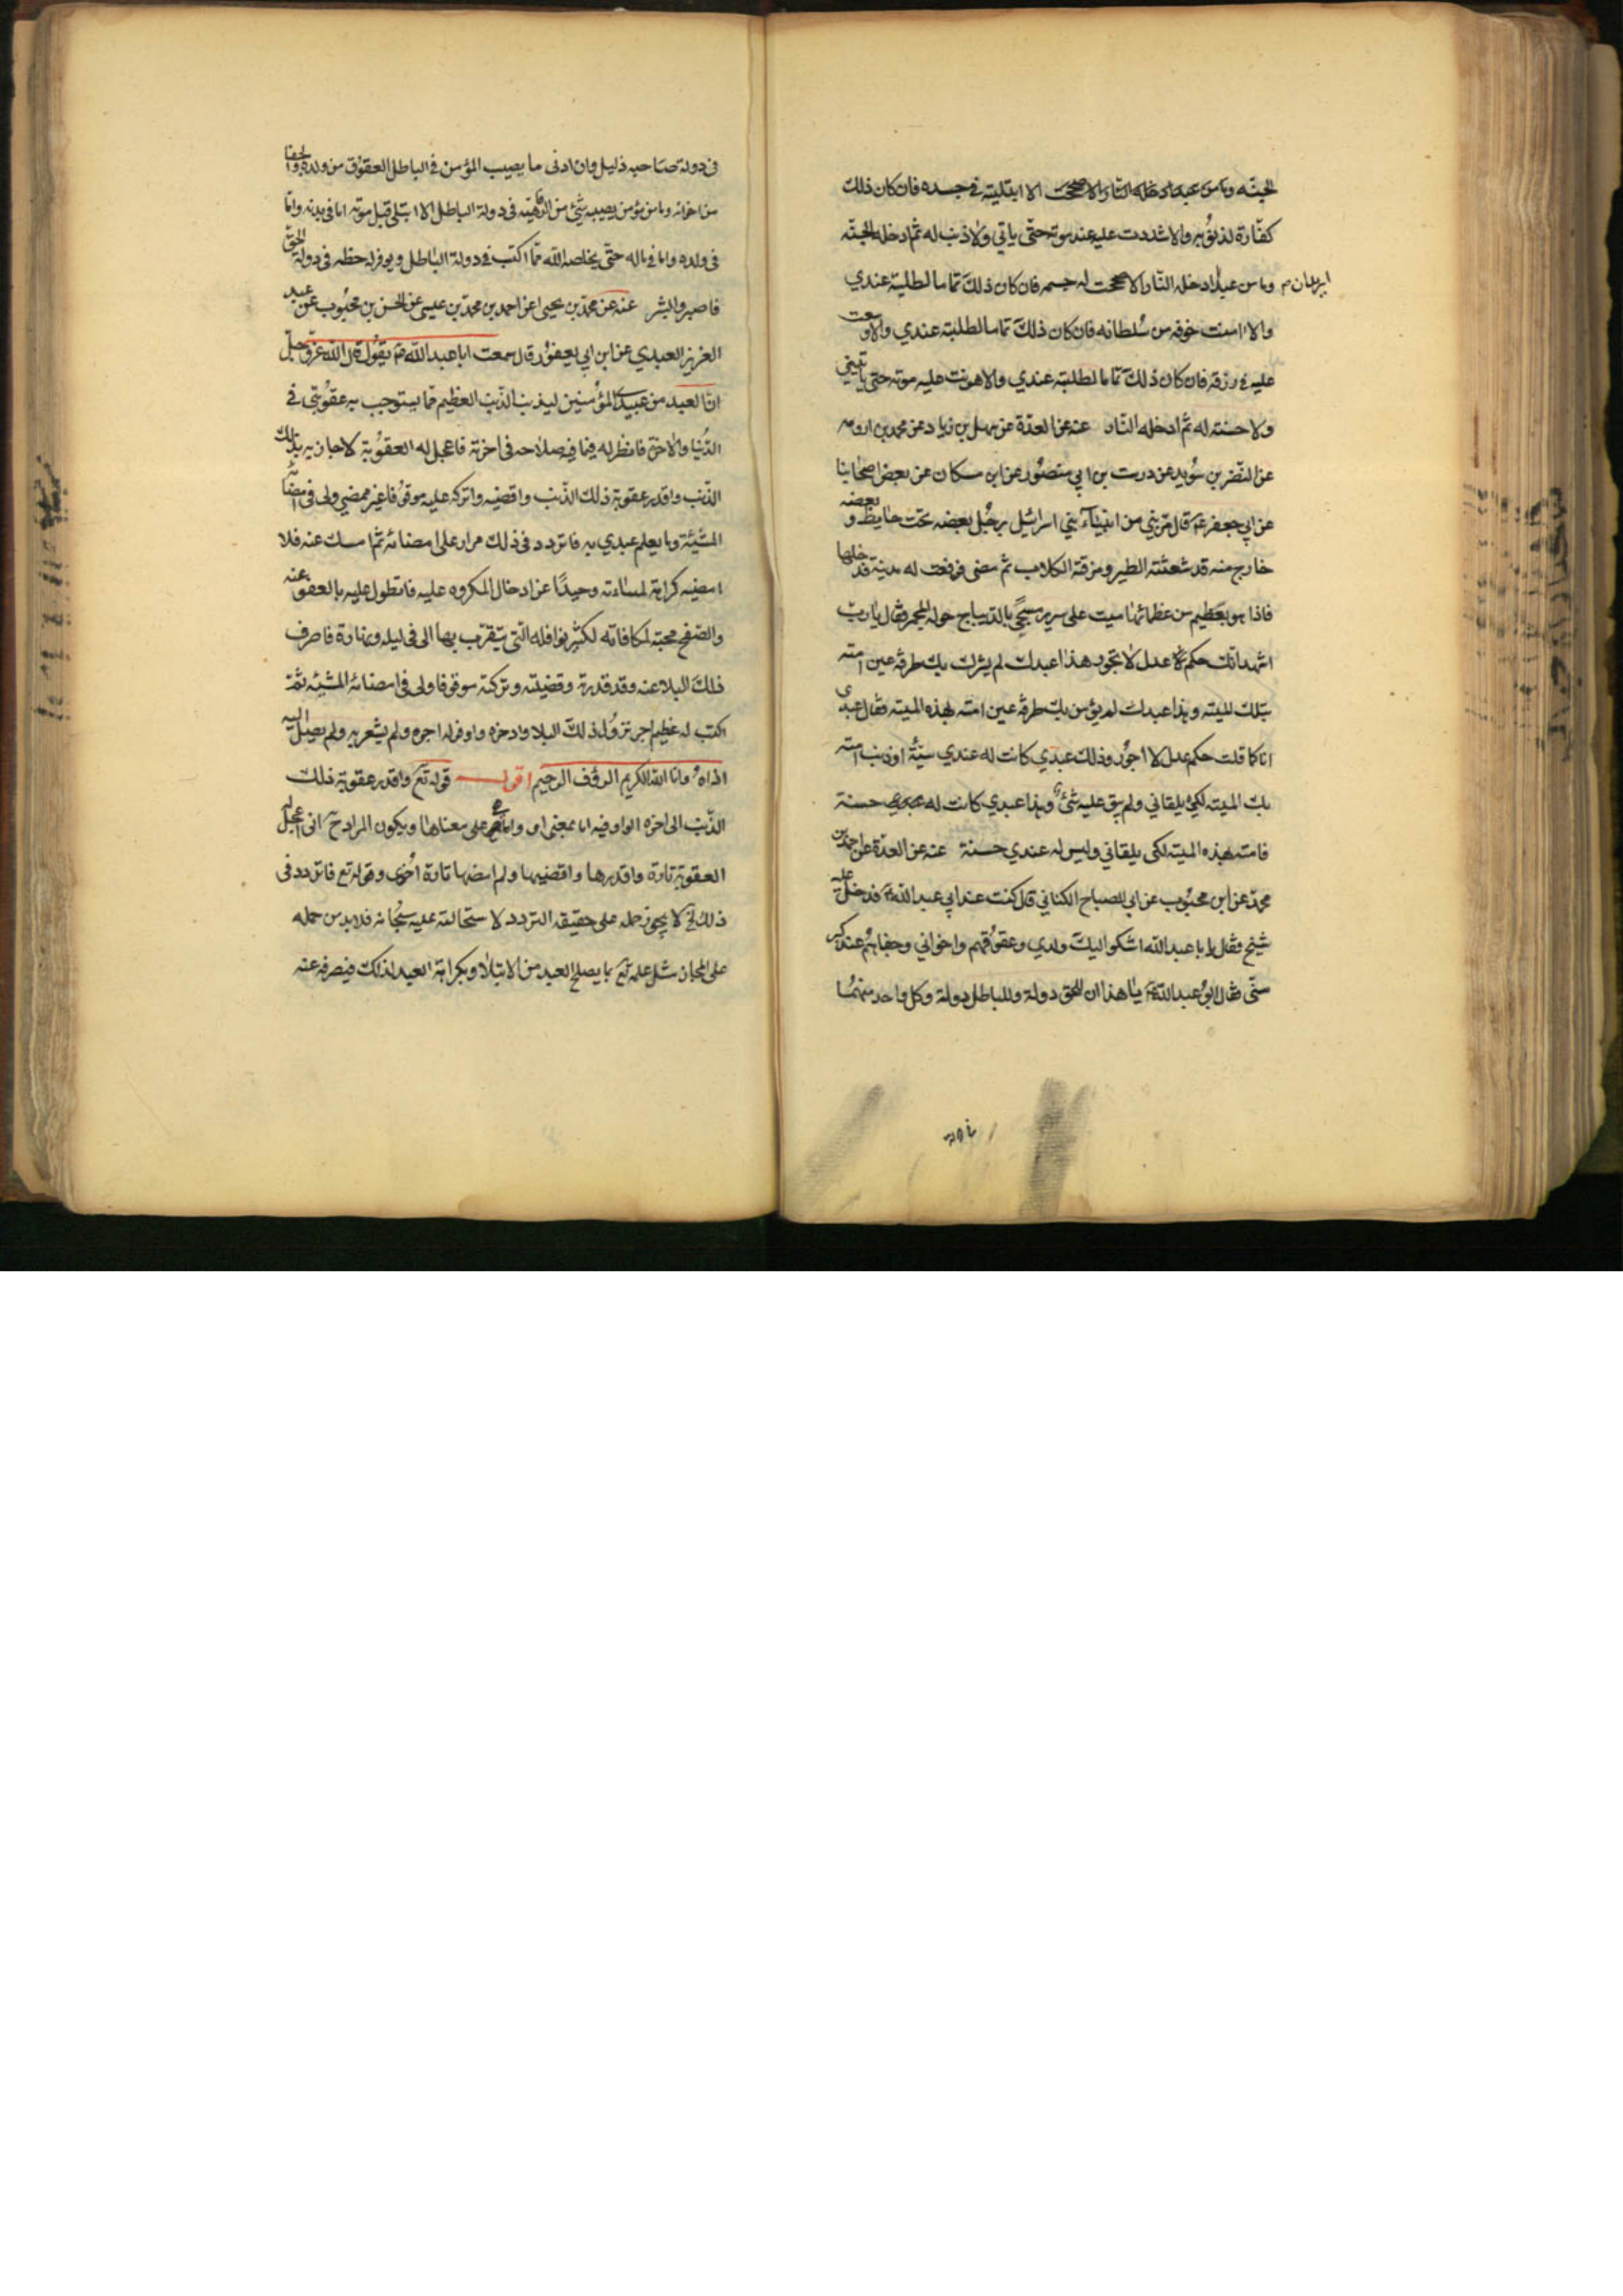 الجنّة وما من عبد ادخله النار الا صححت الا ابتليته في جسده فان كان ذلك
كفّارة لذنوبه والا شددت عليه عند موته حتّى ياتي ولا ذنب له ثم ادخله الجنّه
وما من عبد اريد ان ادخله النّار الا صححت له جسمه فان كان ذلك تماما لطلبته عندي
والا امنت خوفه من سُلطانه فان كان ذلك تماما لطلبته عندي والا وسعت
عليه في رزقه فان كان ذلك تماما لطلبته عندي والا هونت عليه موته حتى ياتيني
ولا حسنة له ثم ادخله النّار عنه عن العدّة عن سهل بن زياد عن محمد بن اورمه
عن النّضر بن سُويد عن درست بن ابي منصُور عن ابن مسكان عن بعض اصحابنا
عن ابي جعفر ع قال مرّ نبي من انبيآء بني اسرائيل برجُل بعضه تحت حايط و بعضه
خارج منه قد شعثته الطير ومزقته الكلاب ثم مضى فرفعت له مدينة فدخلها
فاذا هو بعظيم من عظمائها ميت على سرير مسجّى بالديباج حوله المجمر فقال يا ربّ
اشهد انك حكم عدل لا تجور هذا عبدك لم يشرك بك طرفة عين امته
بتلك الميته وهذا عبدك لم يؤمن بك طرفة عين امته بهذه الميته فقال عبدي
انا كما قلت حكم عدل لا اجور وذلك عبدي كانت له عندي سيّئة او ذنب امته
بتلك الميته لكي يلقاني ولم يبق عليه شئ وهذا عبدي كانت له عندي حسنة
فامته بهذه الميته لكى يلقاني وليس له عندي حسنة عنه عن العدّة عن احمد بن
محمد عن ابن محبُوب عن ابي الصباح الكناني قال كنت عند ابي عبد اللّه ع فدخل عليه
شيخ فقال يا ابا عبد الله اشكو اليك ولدي وعقوقهم واخواني وجفاهم عند كبر
سنّي فقال ابُو عبد اللّه ع يا هذا ان للحق دولة وللباطل دولة وكل واحد منهُما
في دولة صاحبه ذليل وان ادنى ما يصيب المؤمن في الباطل العقوق من ولده والجفا
من اخوانه وما من مؤمن يصيبه شئ من الرفاهيّة في دولة الباطل الا ابتلى قبل موته اما في بدنه وامّا
في ولده واما في ماله حتّى يخلصه اللّه ممّا اكتسب في دولة الباطل ويوفر له حظه في دولة الحق
فاصبر وابشر عنه عن محمّد بن يحيى عن احمد بن محمّد بن عيسى عن الحسن بن محبُوب عن عبد
العزيز العبدي عن ابن ابي يعفوُر قال سمعت ابا عبد اللّه ع يقُول قال اللّه عزّ وجلّ
انّ العبد من عبيدي المؤمنين ليذنب الذّنب العظيم ممّا يستوجب به عقُوبتي في
الدّنيا والآخرة فانظر له فيما فيه صلاحه في اخرته فاعجل له العقوبة لاجازيه بذلك
الذّنب واقدر عقوبة ذلك الذّنب واقضيه واتركه عليه موقوُفا غير ممضي ولى في امضائه
المشيّئة وما يعلم عبدي به فاتردد في ذلك مرارا على امضائه ثم امسك عنه فلا
امضيه كراهة لمساءته وحيدًا عن ادخال المكروه عليه فاتطول عليه بالعفو عنه
والصّفح محبّة لمكافاته لكثير نوافله الّتي يتقرّب بها الى في ليله ونهاره فاصرف
ذلك البلا عنه وقد قدرته وقضيته وتركته موقوفا ولى في امضائه المشيّه ثمّ
اكتب له عظيم اجر نزوُل ذلك البلا وادخره واوفر له اجره ولم يشعر به ولم يصل اليه
اذاه وانا اللّه الكريم الرؤف الرحيم اقول قوله تع واقدر عقوبة ذلك
الذّنب الى اخره الواو فيه اما بمعنى او واما على معناها ويكون المراد ح انى اعجل له
العقوبة تارة واقدرها واقضيها ولم امضها تارة أخرى وقوله تع فاتردد في
ذلك لا يجوز حمله على حقيقة التردد لاستحالته عليه سبحانه فلا بد من حمله
على المجاز مثل علمه تع بما يصلح العبد من الابتلاء وبكراهة العبد لذلك فيصرفه عنه